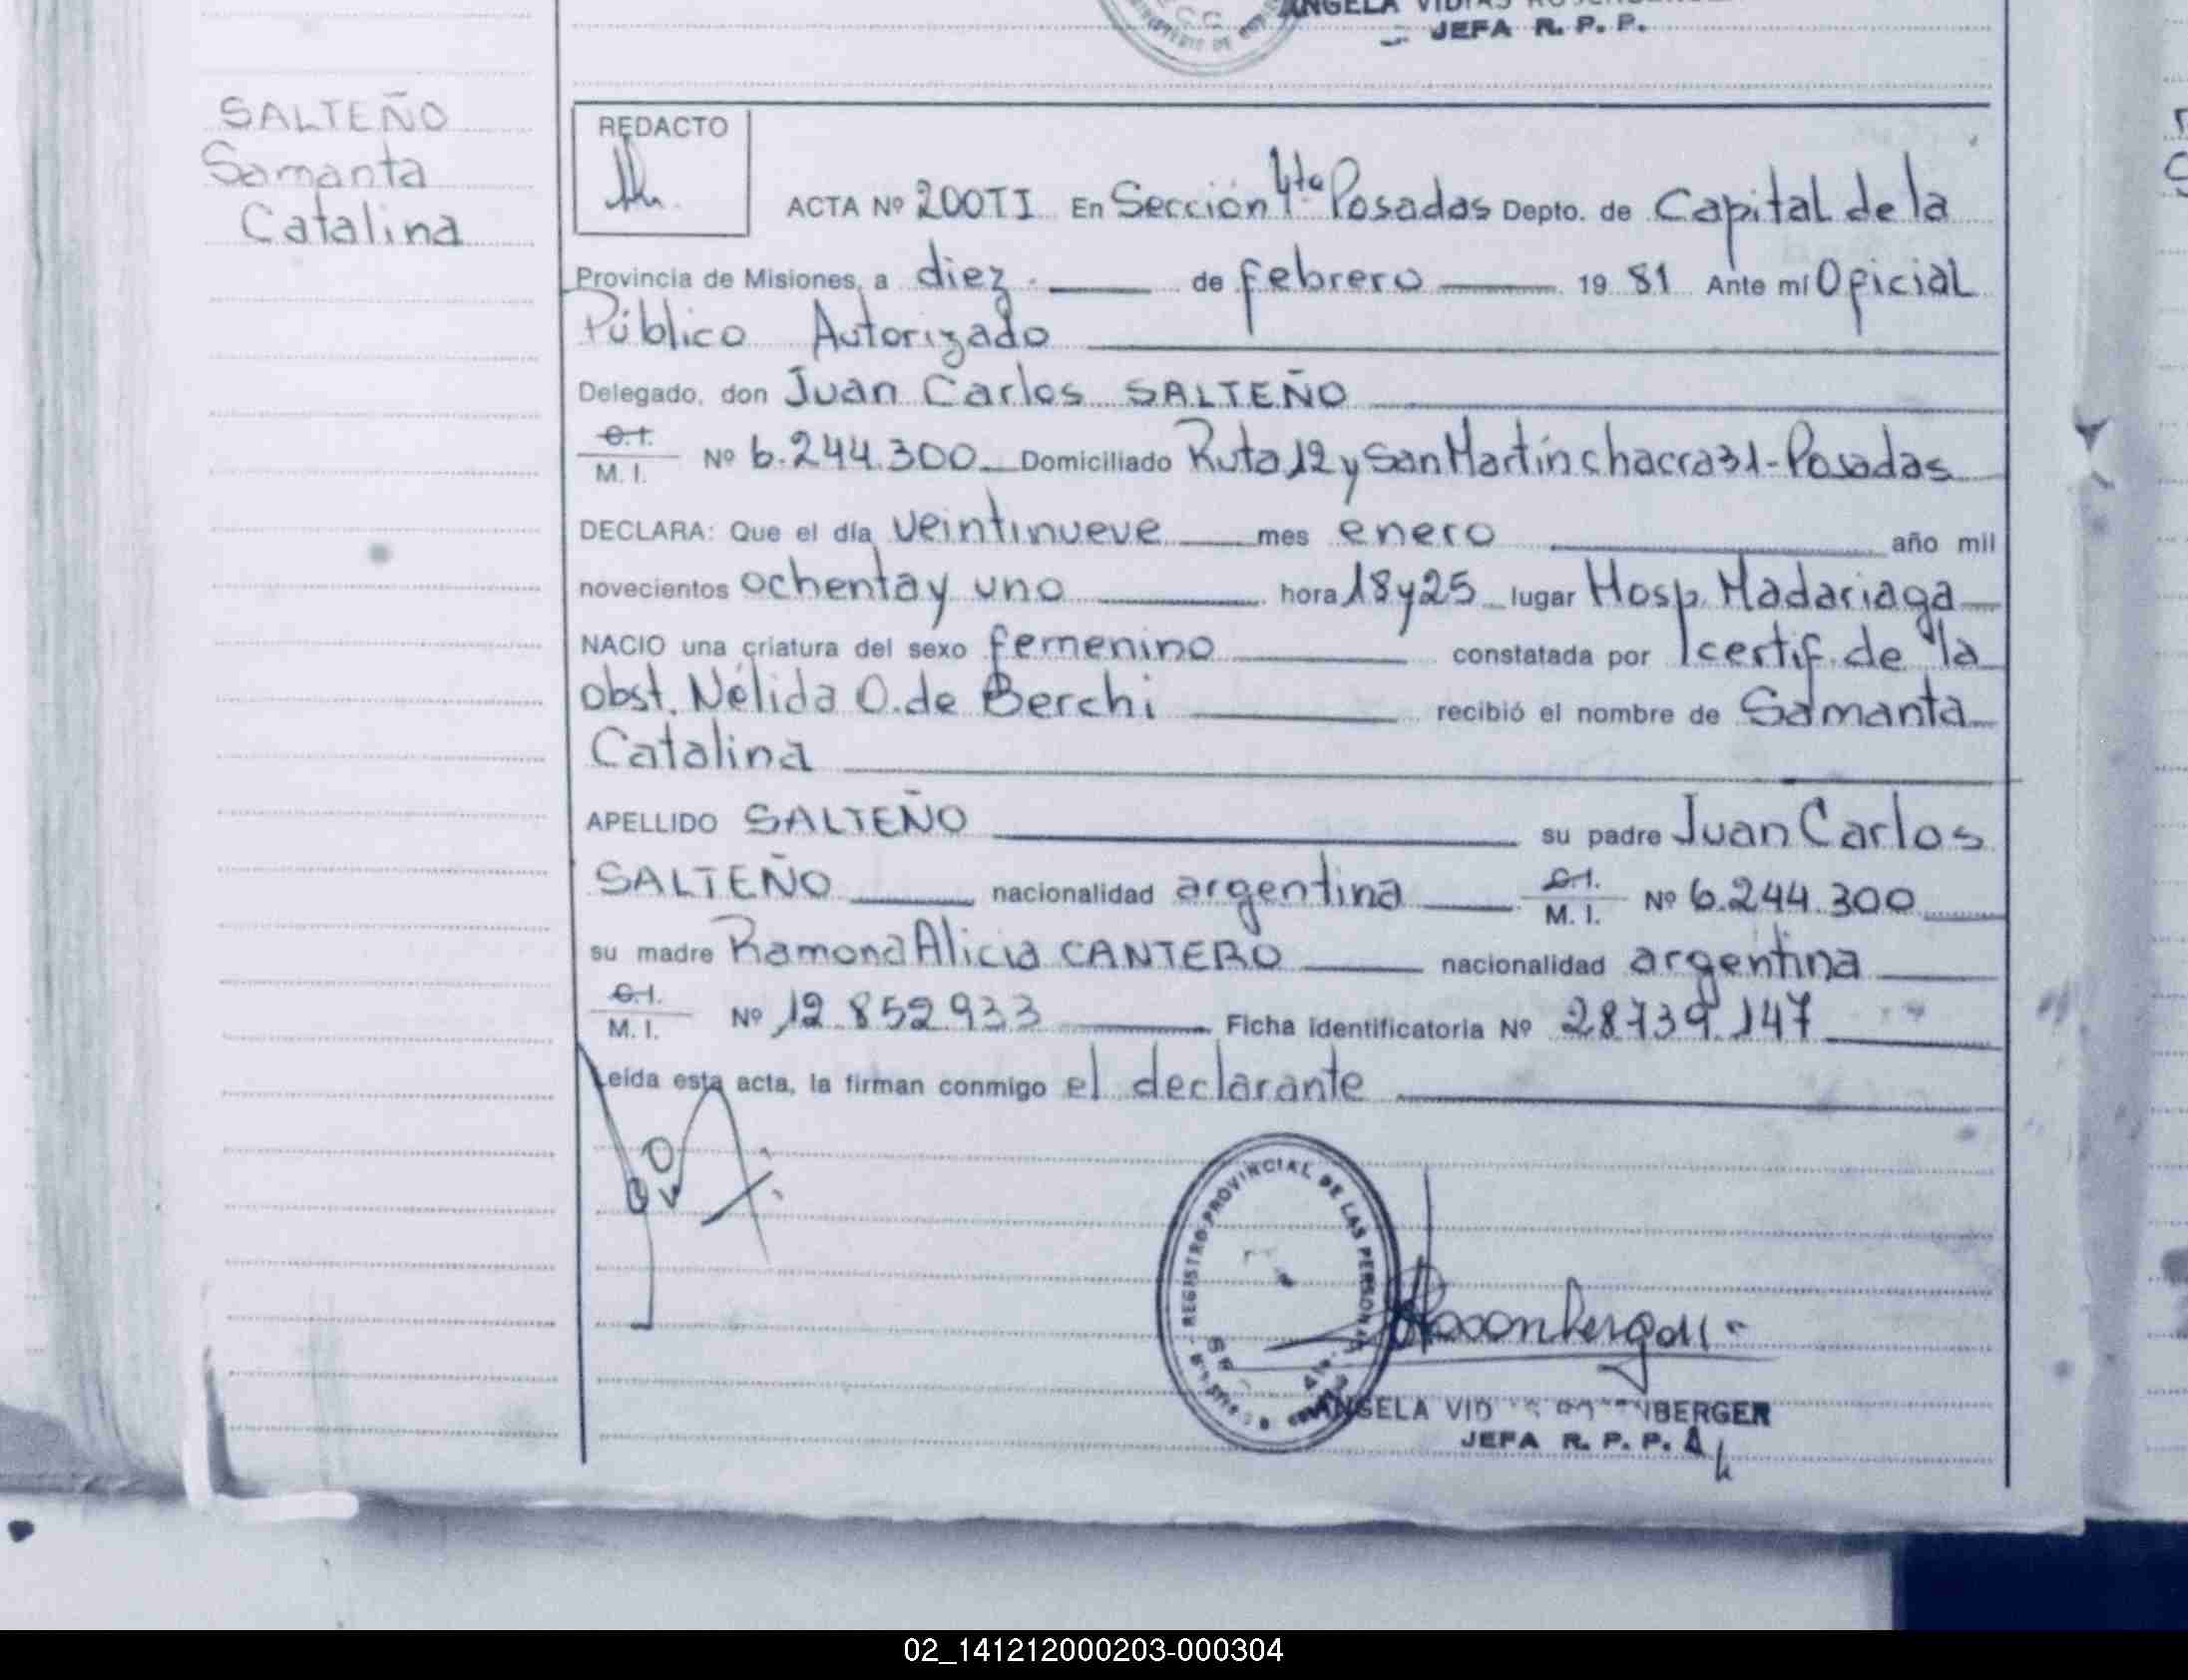 JEFA R. P. P.
SALTEÑO
Samanta
Catalina
REDACTO
ACTA Nº 200TI En Sección 4ta Posadas Depto. de Capital de la
Provincia de Misiones, a diez de febrero 19 81 Ante mí Oficial
Público Autorizado
Delegado, don Juan Carlos SALTEÑO
C.I. M. I. Nº 6.244.300 Domiciliado Ruta 12 y San Martín chacra 31-Posadas
DECLARA: Que el día veintinueve mes enero año mil
novecientos ochenta y uno hora 18 y 25 lugar Hosp. Madariaga
NACIO una criatura del sexo femenino constatada por certif. de la
obst. Nélida O. de Berchi recibió el nombre de Samanta
Catalina
APELLIDO SALTEÑO su padre Juan Carlos
SALTEÑO nacionalidad argentina C.I. M. I. Nº 6.244.300
su madre Ramona Alicia CANTERO nacionalidad argentina
C.I. M. I. Nº 12.852.933 Ficha Identificatoria Nº 28.739.147
Leída esta acta, la firman conmigo el declarante
REGISTRO PROVINCIAL DE LAS PERSONAS
ANGELA
JEFA R. P. P.
02_141212000203-000304